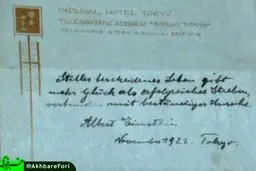 IMPERIAL HOTEL TOKYO
TELEGRAPHIC ADDRESS "IMPEHO TOKYO"
Stilles bescheidenes Leben gibt
mehr Glück als erfolgreiches Streben,
verbunden mit beständiger Unruhe.
Albert Einstein
November 1922. Tokyo.
@AkhbareFori